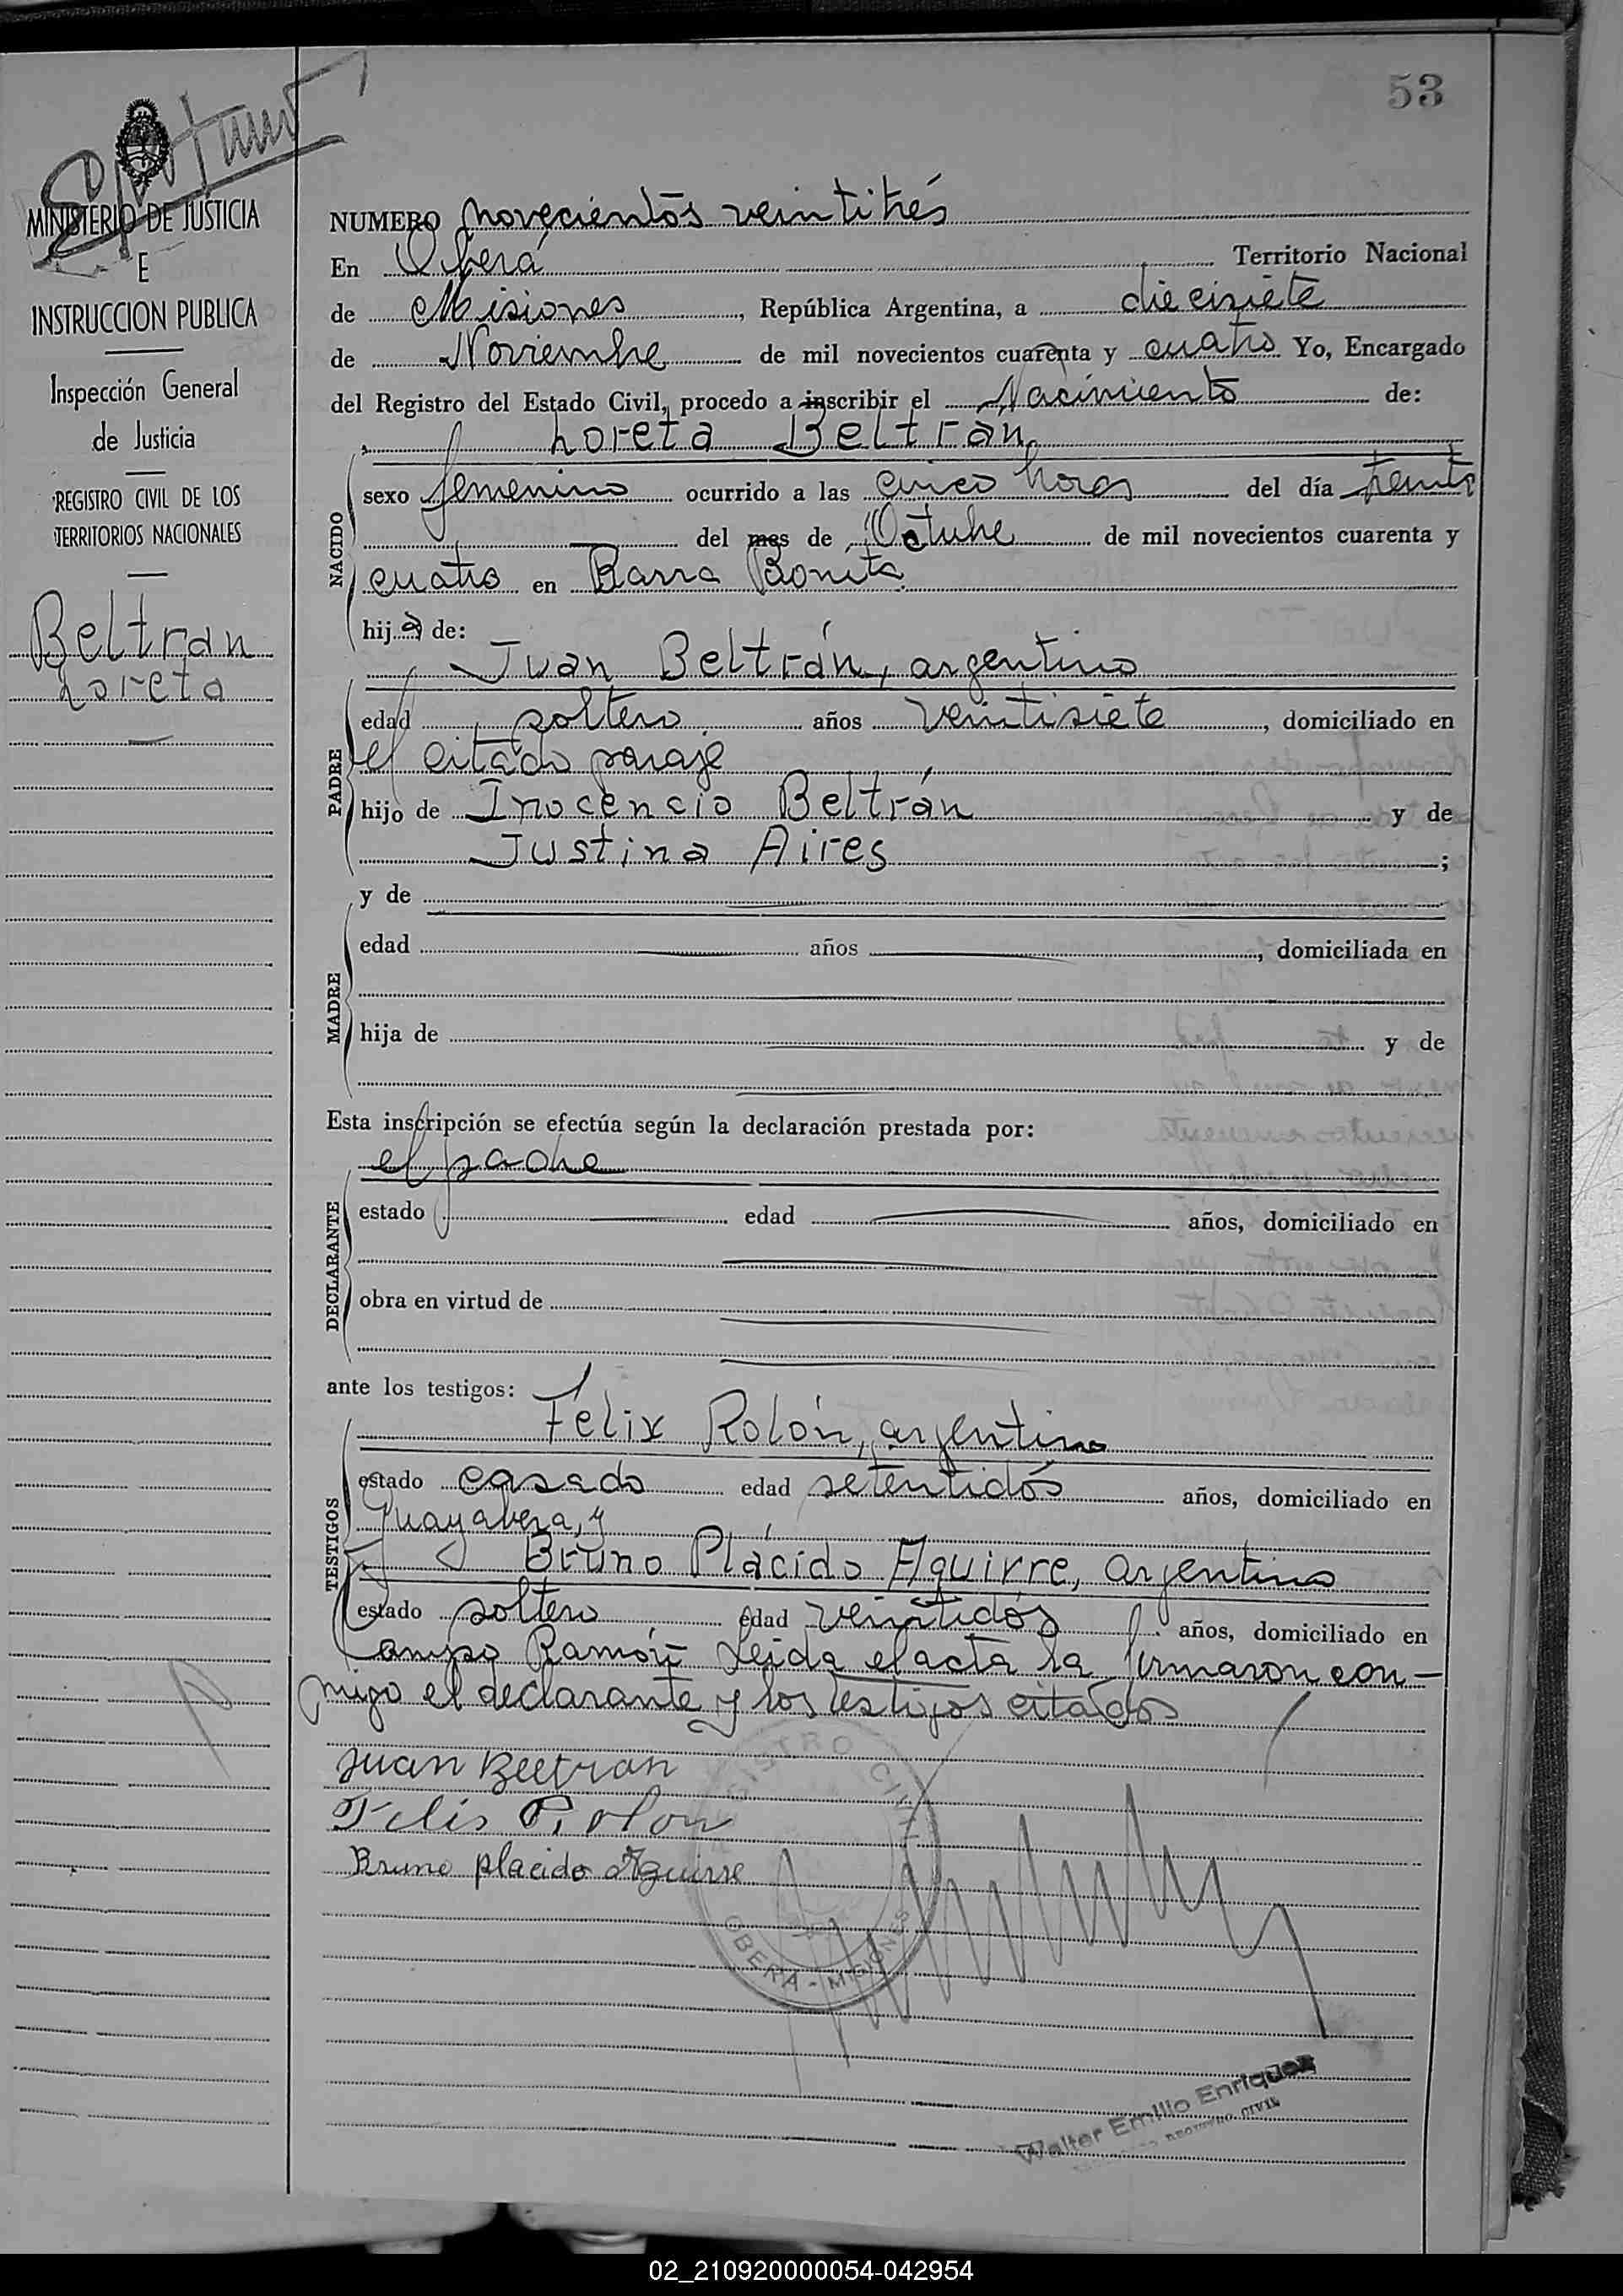 53
MINISTERIO DE JUSTICIA
E
INSTRUCCION PUBLICA
Inspección General
de Justicia
REGISTRO CIVIL DE LOS
TERRITORIOS NACIONALES
Beltran
Loreta
NUMERO novecientos veintitrés
En Oberá Territorio Nacional
de Misiones, República Argentina, a diecisiete
de Noviembre de mil novecientos cuarenta y cuatro Yo, Encargado
del Registro del Estado Civil, procedo a inscribir el Nacimiento de:
Loreta Beltrán
NACIDO
sexo femenino ocurrido a las cinco horas del día treinta
del mes de Octubre de mil novecientos cuarenta y
cuatro en Barra Bonita
hija de:
Juan Beltrán, argentino
PADRE
edad soltero años veintisiete, domiciliado en
el citado paraje
hijo de Inocencio Beltrán y de
Justina Aires;
y de
MADRE
edad años, domiciliada en
hija de y de
Esta inscripción se efectúa según la declaración prestada por:
el padre
DECLARANTE
estado edad años, domiciliado en
obra en virtud de
ante los testigos:
Félix Rolón, argentino
TESTIGOS
estado casado edad setentidós años, domiciliado en
Guayabera, y
Bruno Plácido Aguirre, argentino
estado soltero edad veintidós años, domiciliado en
Campo Ramón Leida el acta la firmaron con-
migo el declarante y los testigos citados
Juan Beltran
Felis Rolon
Bruno placido Aguirre
REGISTRO CIVIL
OBERA - MISIONES
Walter Emilio Enriquez
REGISTRO CIVIL
02_210920000054-042954